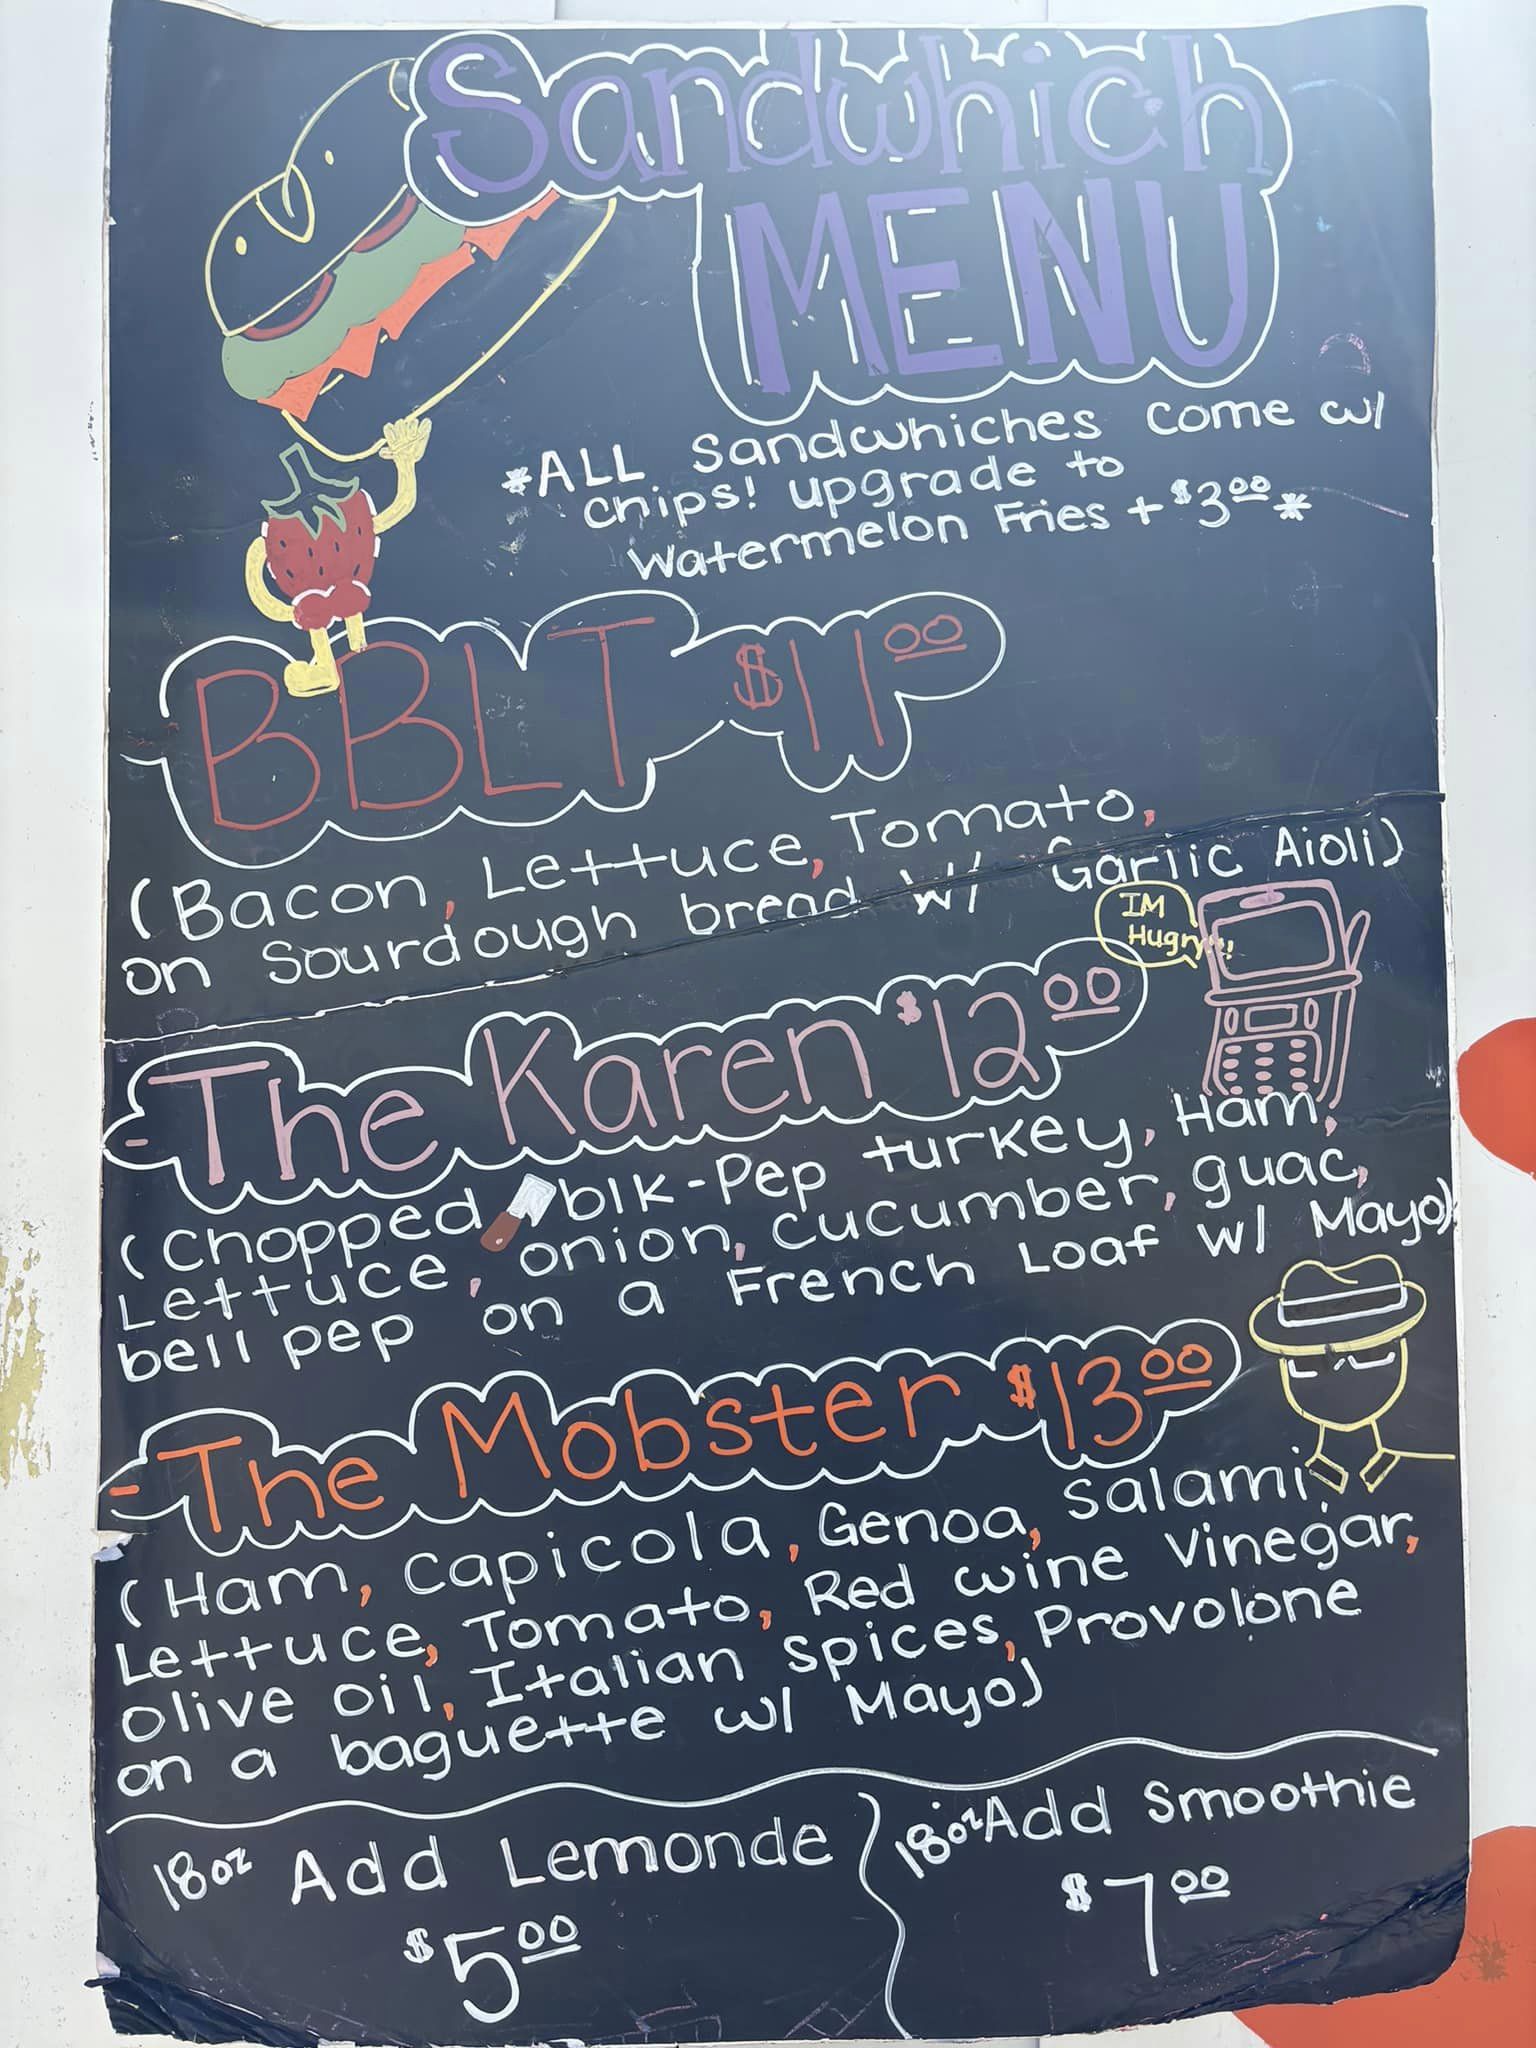 Sandwhich
MENU
*ALL Sandwhiches come w/
chips! upgrade to
Watermelon Fries + $3.00*
BBLT $11.00
(Bacon, Lettuce, Tomato,
on Sourdough bread w/ Garlic Aioli)
IM
Hugry!!!
-The Karen $12.00
(Chopped blk-Pep turkey, Ham,
Lettuce, onion, cucumber, guac,
bell pep on a French Loaf w/ Mayo)
-The Mobster $13.00
(Ham, Capicola, Genoa, Salami,
Lettuce, Tomato, Red wine Vinegar,
Olive Oil, Italian Spices, Provolone
on a baguette w/ Mayo)
18oz Add Lemonde
$5.00
18oz Add Smoothie
$7.00